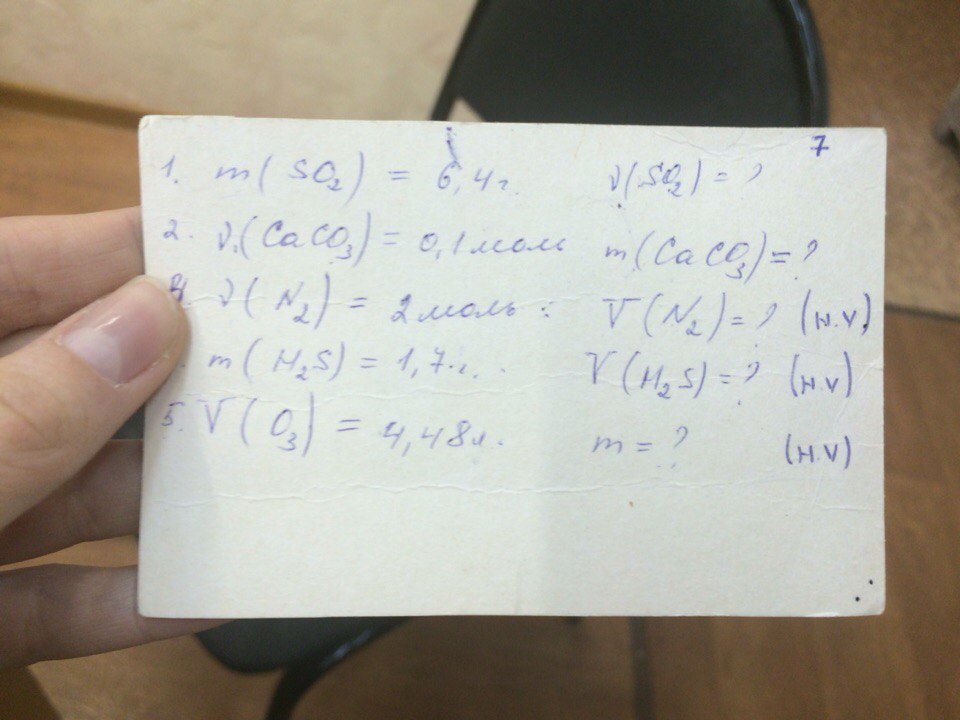 7
1. m(SO₂) = 6,4 г. ν(SO₂) = ?
2. ν(CaCO₃) = 0,1 моль m(CaCO₃) = ?
ν(N₂) = 2 моль: V(N₂) = ? (н.у)
m(H₂S) = 1,7 г. V(H₂S) = ? (н.у)
5. V(O₃) = 4,48 л. m = ? (н.у)